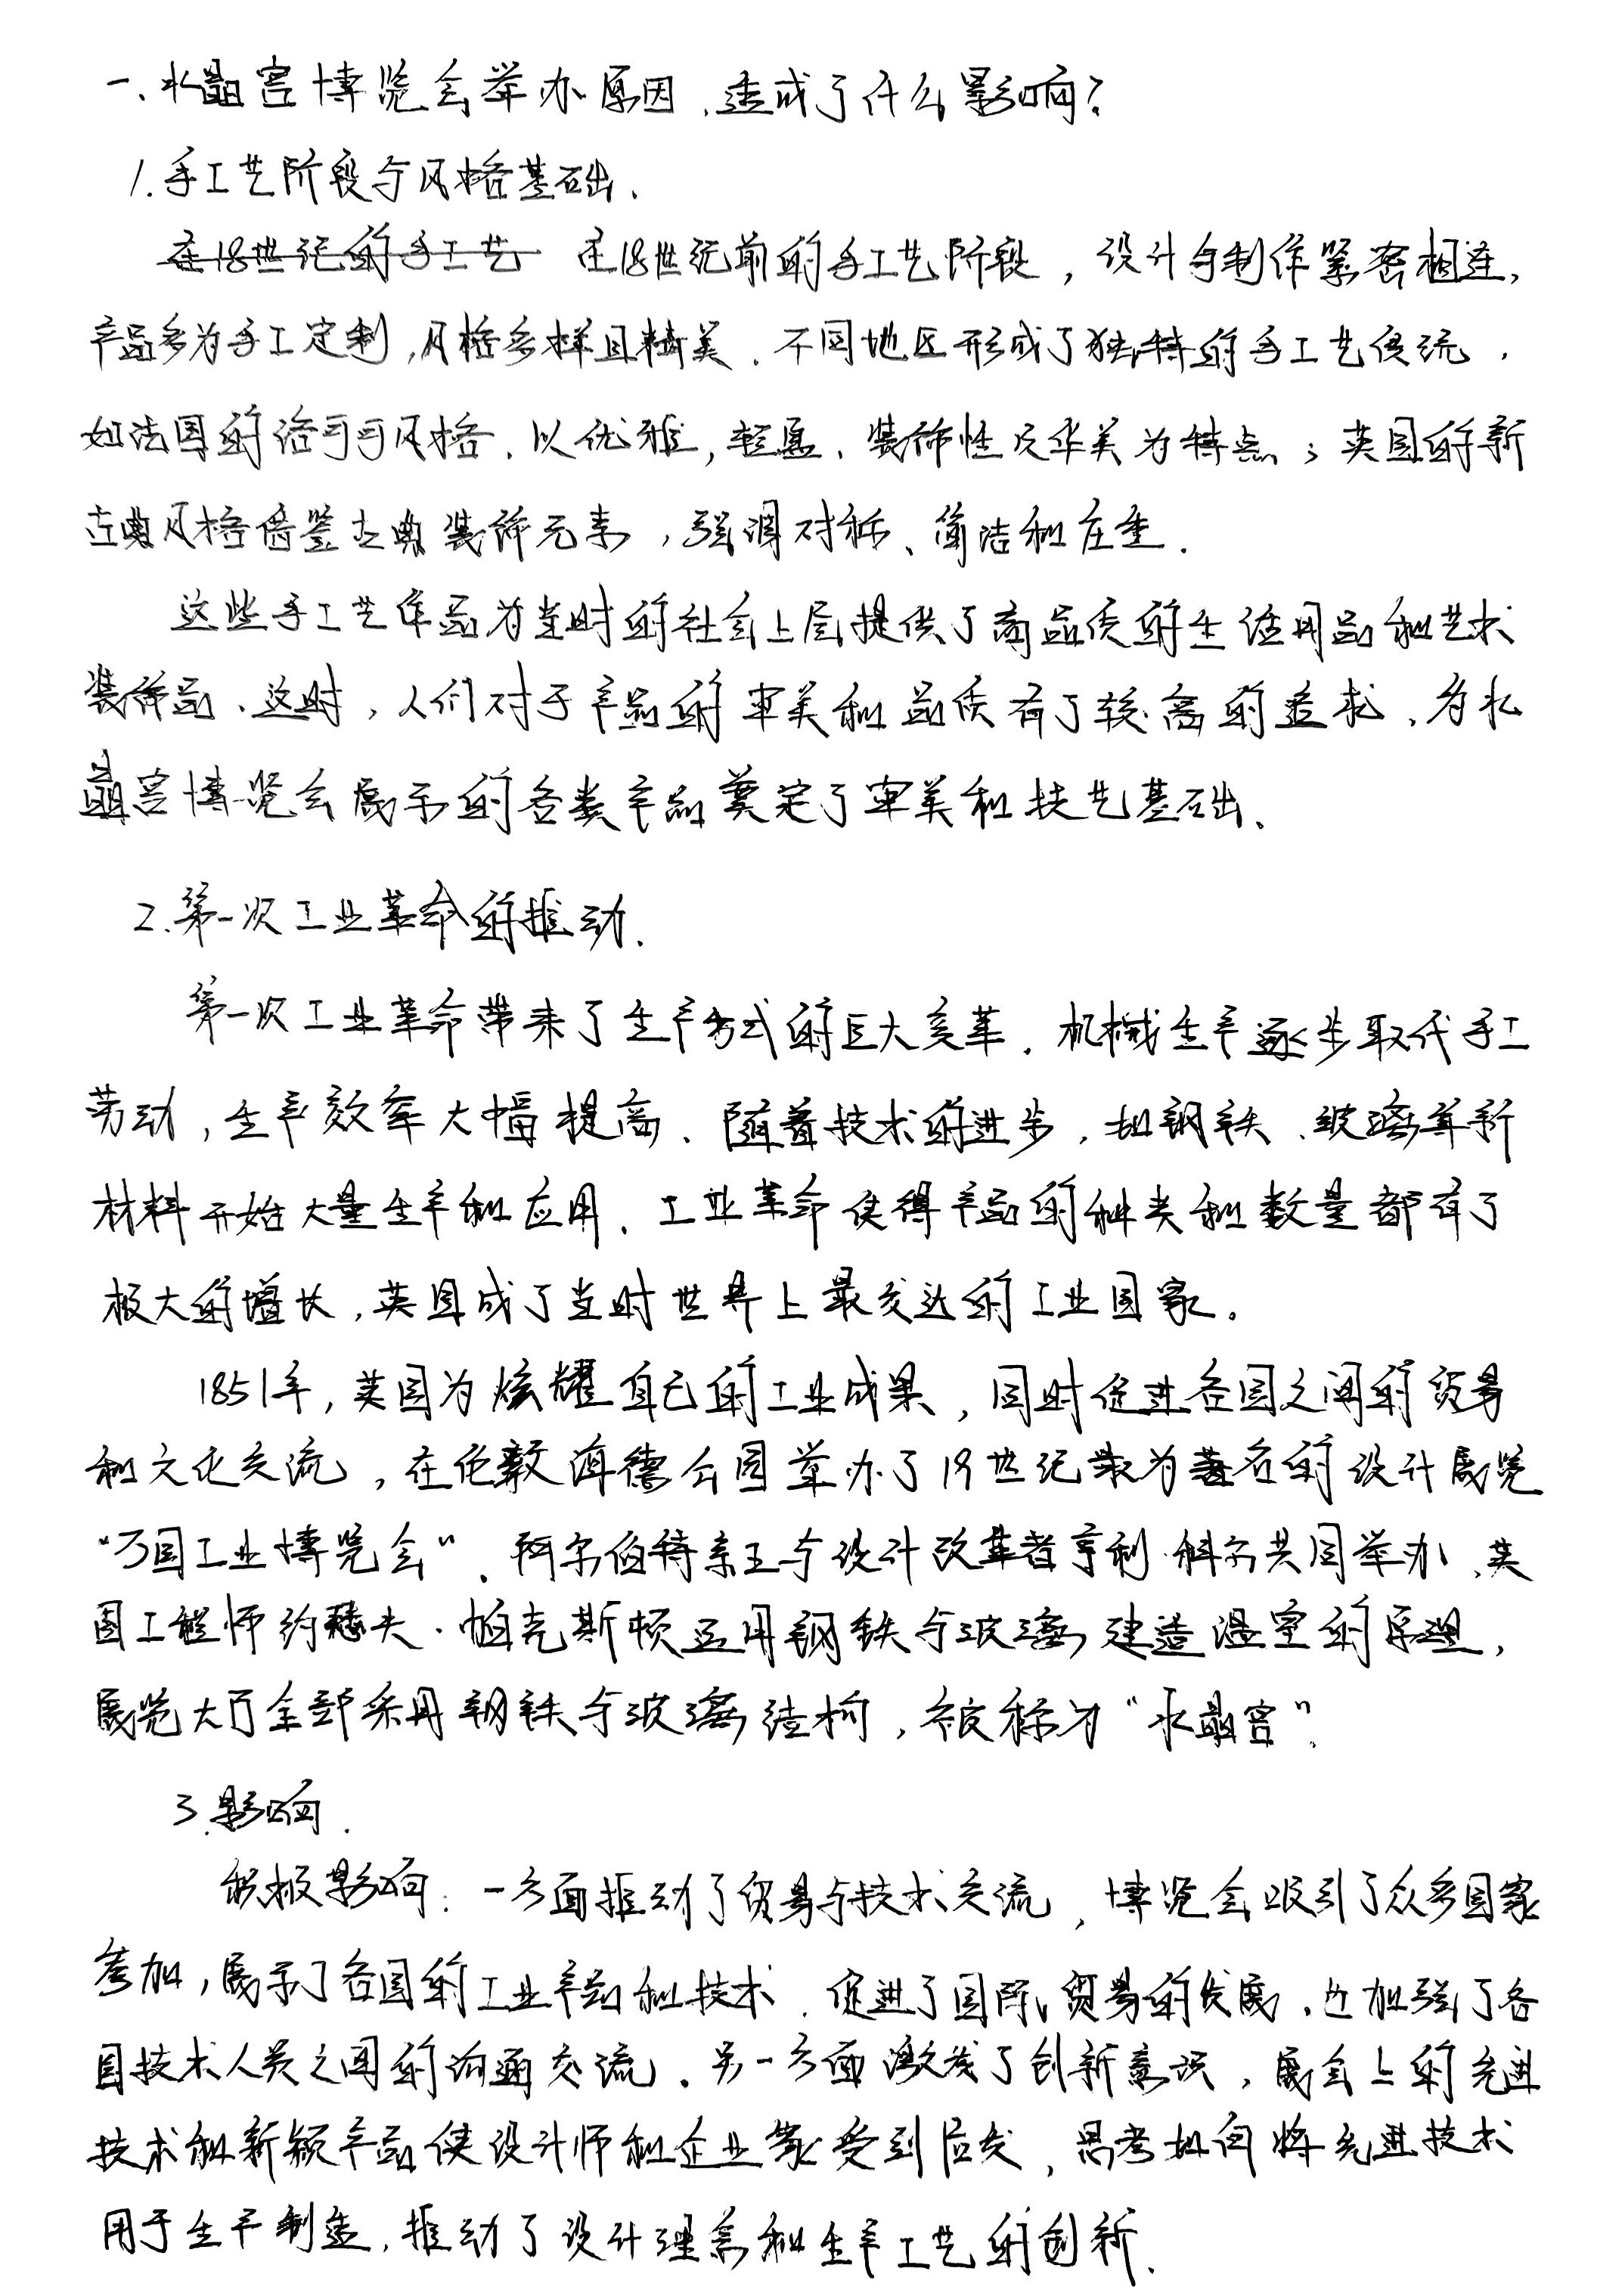 一、水晶宫博览会举办原因，造成了什么影响？
1.手工艺阶段与风格基础.
在18世纪的手工艺 在18世纪前的手工艺阶段，设计与制作紧密相连，
产品多为手工定制，风格多样且精美.不同地区形成了独特的手工艺传统，
如法国的洛可可风格.以优雅，轻盈、装饰性及华美为特点；英国的新
古典风格借鉴古典装饰元素，强调对称、简洁和庄重.
这些手工艺作品为当时的社会上层提供了高品质的生活用品和艺术
装饰品、这时，人们对于产品的审美和品质有了较高的追求、为水
晶宫博览会展示的各类产品奠定了审美和技艺基础、
2.第一次工业革命的推动.
第一次工业革命带来了生产方式的巨大变革.机械生产逐步取代手工
劳动，生产效率大幅提高.随着技术的进步，如钢铁、玻璃等新
材料开始大量生产和应用.工业革命使得产品的种类和数量都有了
极大的增长，英国成了当时世界上最发达的工业国家。
1851年，英国为炫耀自己的工业成果，同时促进各国之间的贸易
和文化交流，在伦敦海德公园举办了19世纪最为著名的设计展览
“万国工业博览会”.阿尔伯特亲王与设计改革者亨利·科尔共同举办、英
国工程师约瑟夫·帕克斯顿运用钢铁与玻璃建造温室的原理，
展览大厅全部采用钢铁与玻璃结构，被称为“水晶宫”.
3.影响.
积极影响：一方面推动了贸易与技术交流，博览会吸引了众多国家
参加，展示了各国的工业产品和技术.促进了国际贸易的发展.也加强了各
国技术人员之间的沟通交流.另一方面激发了创新意识，展会上的先进
技术和新颖产品使设计师和企业家受到启发，思考如何将先进技术
用于生产制造，推动了设计理念和生产工艺的创新.